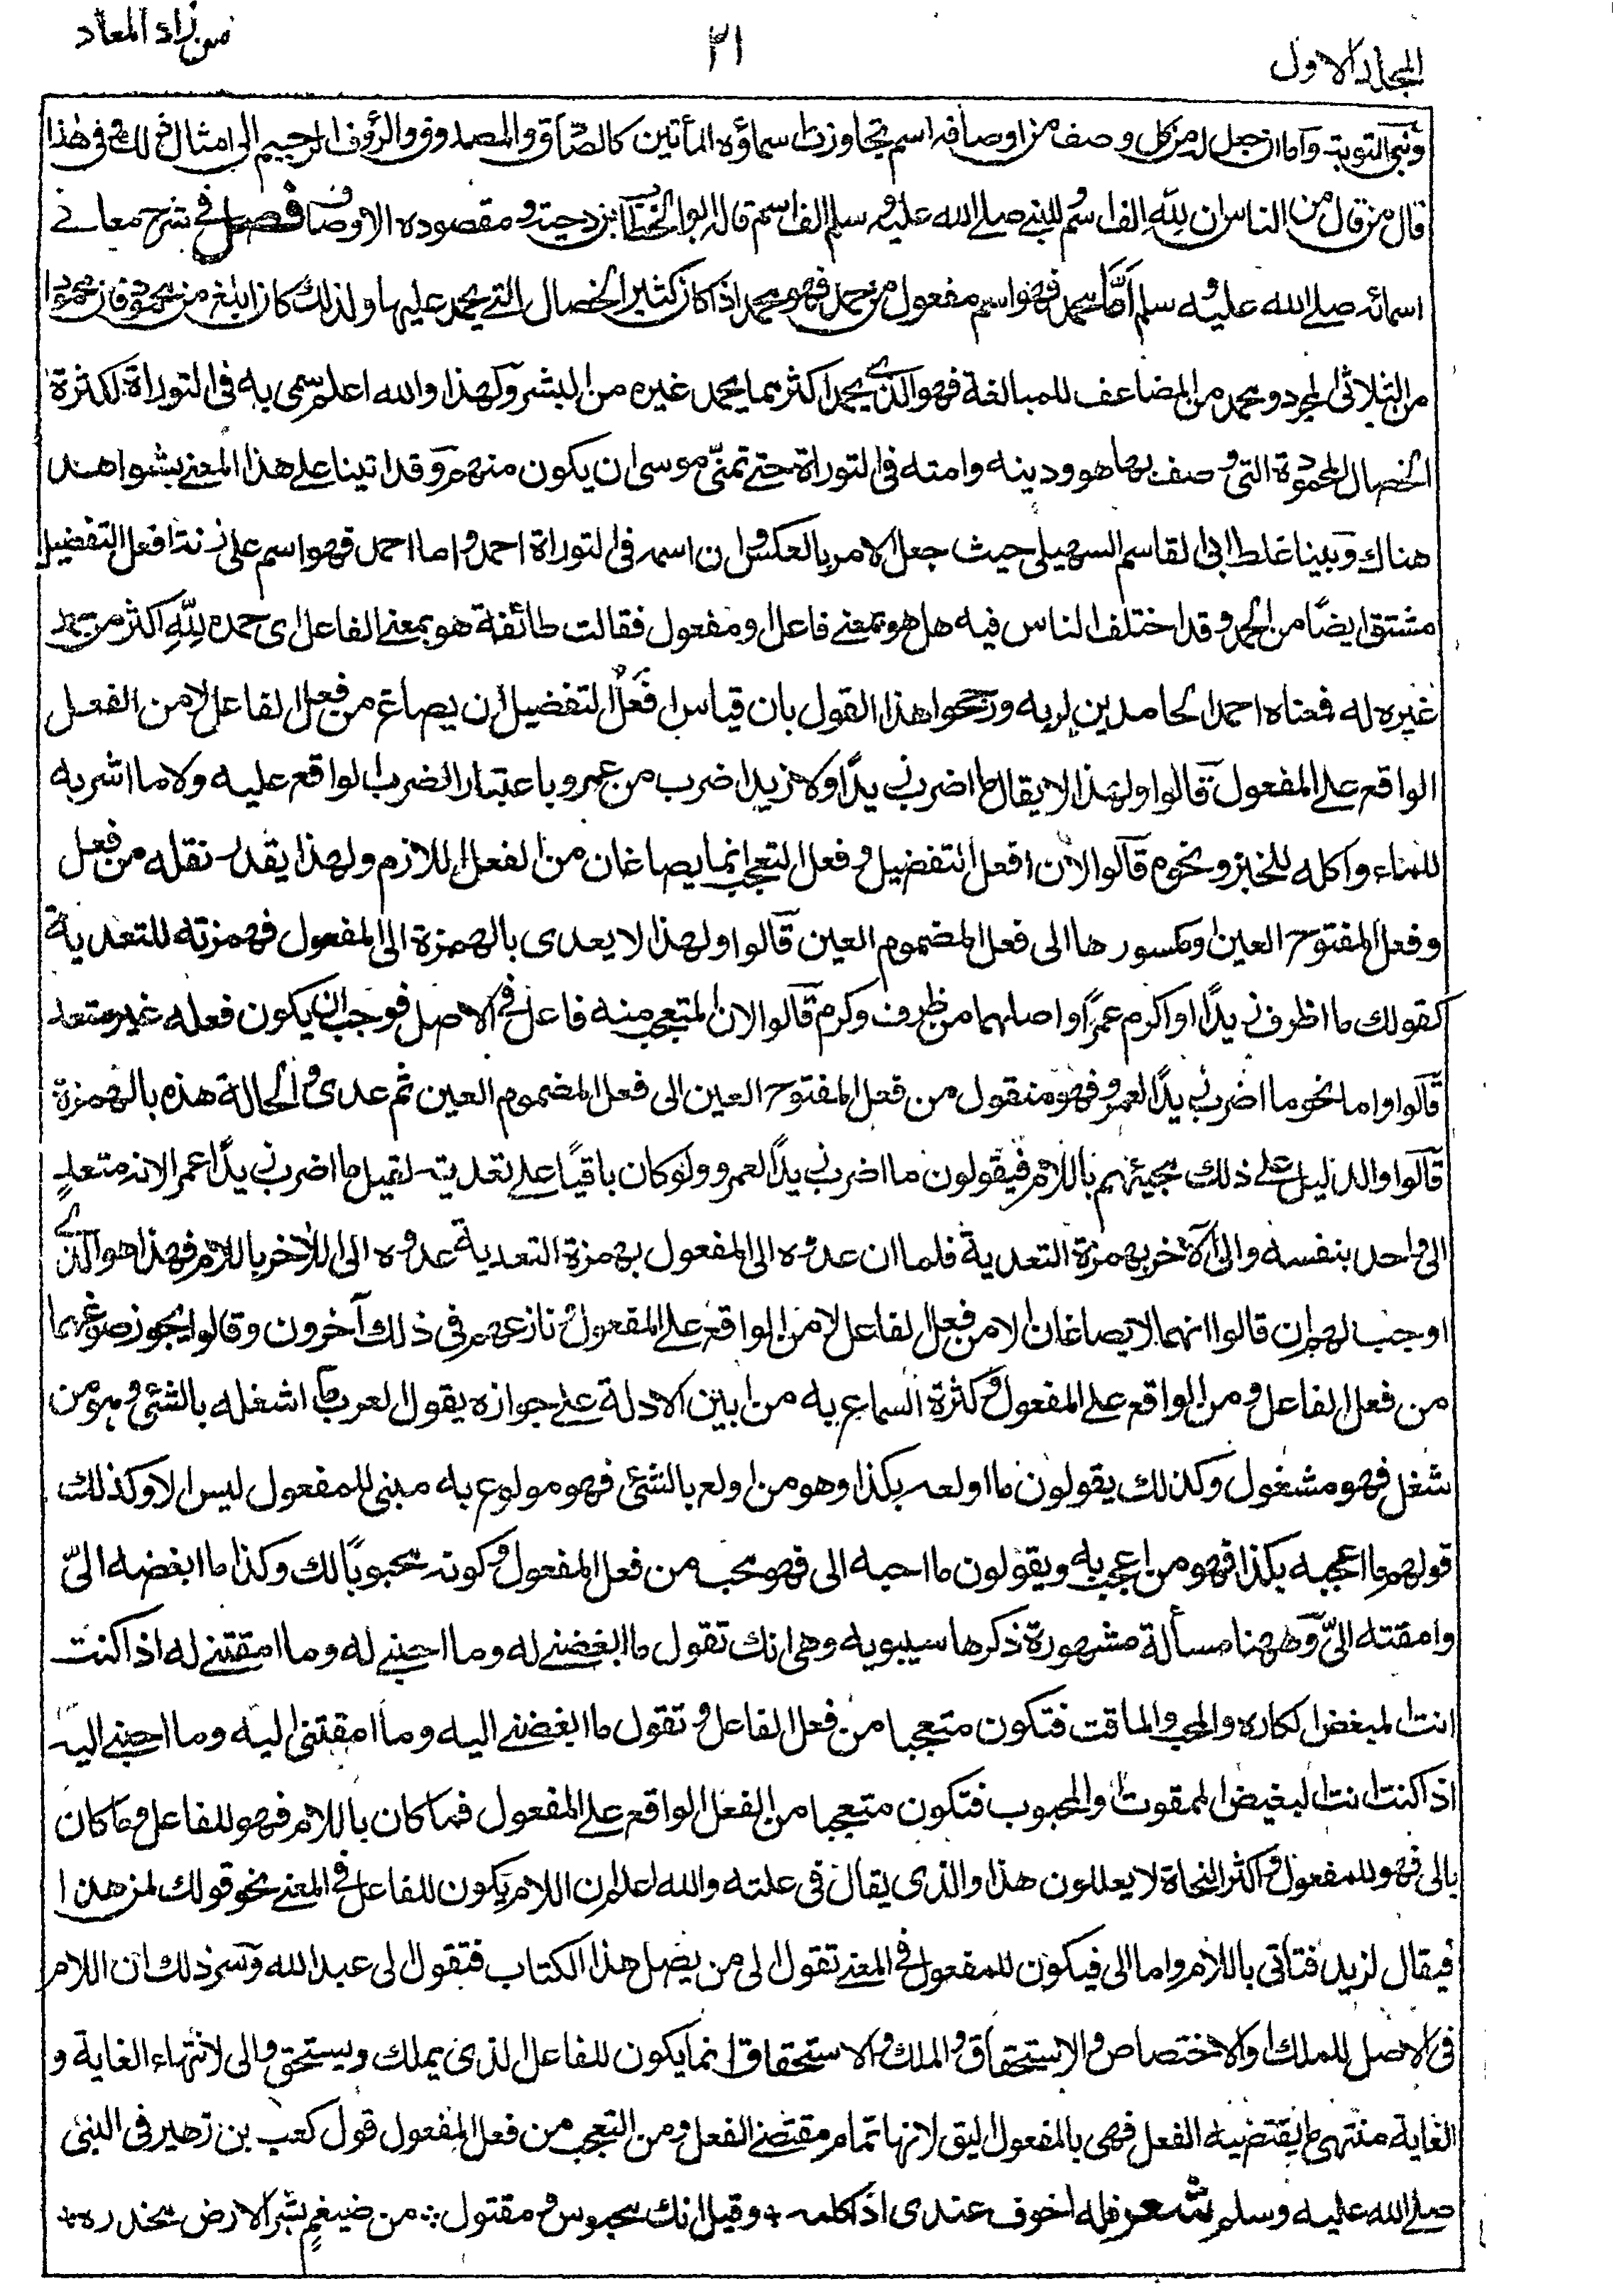 المجلد الاول
٣١
من زاد المعاد
ونبي التوبة وأما ان جعل له من كل وصف من اوصافه اسم تجاوزت اسماؤه المأتين كالصادق والمصدوق والرؤف الرحيم الى امثال ذلك وفي هذا
قال من قال من الناس ان لِلّٰهِ الف اسم وللنبي صلے الله عليه وسلم الف اسم قاله ابو الخطاب بن دحية ومقصوده الاوصاف فصل فے شرح معانے
اسمائه صلے الله عليه وسلم اَمَّا محمد فهو اسم مفعول من حمد فهو محمد اذا كان كثير الخصال التے يحمد عليها ولذلك كان ابلغ من محمود فان محمودا
من الثلاثى المجرد ومحمد من المضاعف للمبالغة فهو الذے يحمد اكثر مما يحمد غيره من البشر ولهذا والله اعلم سمى به فى التوراة لكثرة
الخصال المحمودة التى وصف بها هو ودينه وامته فى التوراة حتے تمنّى موسى ان يكون منهم وقد اتينا علے هذا المعنے بشواهد
هناك وبينا غلط ابى القاسم السهيلى حيث جعل الامر بالعكس وان اسمه فى التوراة احمد واما احمد فهو اسم على زنة افعل التفضيل
مشتق ايضًا من الحمد وقد اختلف الناس فيه هل هو بمعنے فاعل او مفعول فقالت طائفة هو بمعنے الفاعل اى حمده لِلّٰهِ اكثر من حمد
غيره له فمعناه احمد الحامدين لربه ورجحوا هذا القول بان قياس افعل التفضيل ان يصاغ من فعل الفاعل لا من الفعل
الواقع علے المفعول قالوا ولهذا لا يقال ما اضرب زيدًا ولا زيد اضرب من عمرو باعتبار الضرب الواقع عليه ولا ما اشربه
للماء وآكله للخبز ونحوه قالوا لان افعل التفضيل وفعل التعجب انما يصاغان من الفعل اللازم ولهذا يقدر نقله من فعل
وفعل المفتوح العين ومكسورها الى فعل المضموم العين قالوا ولهذا لا يعدى بالهمزة الى المفعول فهمزته للتعدية
كقولك ما اظرف زيدًا او اكرم عمرًا واصلهما من ظرف وكرم قالوا لان المتعجب منه فاعل فے الاصل فوجب ان يكون فعله غير متعد
قالوا واما نحو ما اضرب زيدًا لعمرو فهو منقول من فعل المفتوح العين الى فعل المضموم العين ثم عدى والحالة هذه بالهمزة
قالوا والدليل علے ذلك مجيئهم باللام فيقولون ما اضرب زيدًا لعمرو ولو كان باقيًا علے تعديته لقيل ما اضرب زيدًا عمرا لانه متعدٍ
الى واحد بنفسه والى الآخر بهمزة التعدية فلما ان عدوه الى المفعول بهمزة التعدية عدوه الى الآخر باللام فهذا هو الذے
اوجب لهم ان قالوا انهما لا يصاغان الا من فعل الفاعل لا من الواقع علے المفعول ونازعهم فى ذلك آخرون وقالوا يجوز صوغهما
من فعل الفاعل ومن الواقع علے المفعول وكثرة السماع به من ابين الادلة علے جوازه يقول العرب ما اشغله بالشئ وهو من
شغل فهو مشغول وكذلك يقولون ما اولعه بكذا وهو من اولع بالشئ فهو مولوع به مبنى للمفعول ليس الا وكذلك
قولهم ما اعجبه بكذا فهو من اعجب به ويقولون ما احبه الى فهو محب من فعل المفعول وكونه محبوبًا لك وكذا ما ابغضه الىّ
وامقته الىّ وههنا مسألة مشهورة ذكرها سيبويه وهى انك تقول ما ابغضنے له وما احبنے له وما امقتنے له اذا كنت
انت المبغض الكاره والمحب والماقت فتكون متعجبا من فعل الفاعل وتقول ما ابغضنے اليه وما امقتنى اليه وما احبنے اليه
اذا كنت انت البغيض الممقوت والمحبوب فتكون متعجبا من الفعل الواقع علے المفعول فما كان باللام فهو للفاعل وما كان
بالى فهو للمفعول واكثر النحاة لا يعللون هذا والذى يقال فى علته والله اعلم ان اللام تكون للفاعل فے المعنے نحو قولك لمن هذا
فيقال لزيد فتأتى باللام واما الى فيكون للمفعول فے المعنے تقول الى من يصل هذا الكتاب فتقول الى عبد الله وسر ذلك ان اللام
فى الاصل للملك او الاختصاص والاستحقاق والملك والاستحقاق انما يكون للفاعل الذى يملك ويستحق والى لانتهاء الغاية و
الغاية منتهى ما يقتضيه الفعل فهى بالمفعول اليق لانها تمام مقتضے الفعل ومن التعجب من فعل المفعول قول كعب بن زهير فى النبى
صلے الله عليه وسلم شعر فله اخوف عندى اذ اكلمه ؞ وقيل انك محبوس ومقتول ؞ من ضيغمٍ بثر الارض مخدره ؞